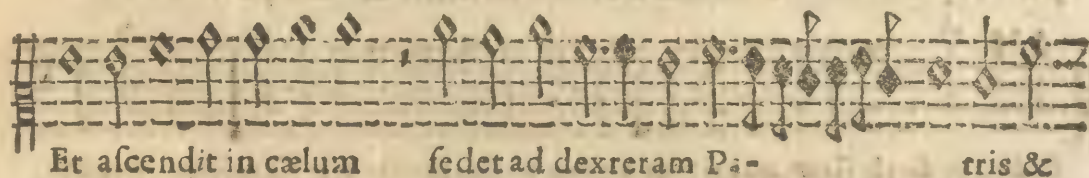 Et aſcendit in cælum ſedet ad dexreram Pa- tris &